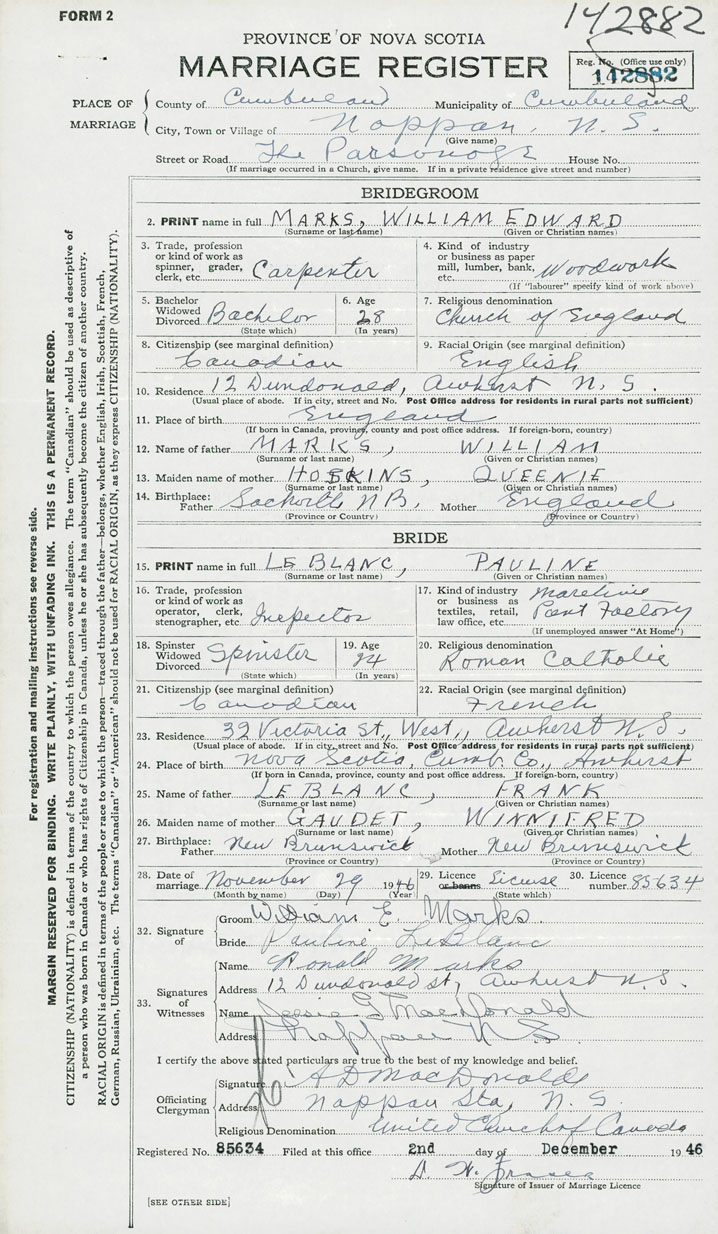 FORM 2
142882
PROVINCE OF NOVA SCOTIA
MARRIAGE REGISTER
Reg. No. (Office use only)
142882
PLACE OF MARRIAGE
County of Cumberland Municipality of Cumberland
City, Town or Village of Nappan, N.S.
(Give name)
Street or Road The Parsonage House No.
(If marriage occurred in a Church, give name. If in a private residence give street and number)
BRIDEGROOM
2. PRINT name in full MARKS, WILLIAM EDWARD
(Surname or last name) (Given or Christian names)
3. Trade, profession or kind of work as spinner, grader, clerk, etc. Carpenter
4. Kind of industry or business as paper mill, lumber, bank, etc. Woodwork
(If "labourer" specify kind of work above)
5. Bachelor Widowed Divorced Bachelor
(State which)
6. Age 28
(In years)
7. Religious denomination
Church of England
8. Citizenship (see marginal definition)
Canadian
9. Racial Origin (see marginal definition)
English
10. Residence 12 Dundonald, Amherst N.S.
(Usual place of abode. If in city, street and No. Post Office address for residents in rural parts not sufficient)
11. Place of birth England
(If born in Canada, province, county and post office address. If foreign-born, country)
12. Name of father MARKS, WILLIAM
(Surname or last name) (Given or Christian names)
13. Maiden name of mother HOSKINS, QUEENIE
(Surname or last name) (Given or Christian names)
14. Birthplace: Father Sackville N.B. Mother England
(Province or Country) (Province or Country)
BRIDE
15. PRINT name in full LE BLANC, PAULINE
(Surname or last name) (Given or Christian names)
16. Trade, profession or kind of work as operator, clerk, stenographer, etc. Inspector
17. Kind of industry or business as textiles, retail, law office, etc. Maritime Pant Factory
(If unemployed answer "At Home")
18. Spinster Widowed Divorced Spinster
(State which)
19. Age 24
(In years)
20. Religious denomination
Roman Catholic
21. Citizenship (see marginal definition)
Canadian
22. Racial Origin (see marginal definition)
French
23. Residence 32 Victoria St., West, Amherst N.S.
(Usual place of abode. If in city, street and No. Post Office address for residents in rural parts not sufficient)
24. Place of birth Nova Scotia, Cumb. Co., Amherst
(If born in Canada, province, county and post office address. If foreign-born, country)
25. Name of father LE BLANC, FRANK
(Surname or last name) (Given or Christian names)
26. Maiden name of mother GAUDET, WINNIFRED
(Surname or last name) (Given or Christian names)
27. Birthplace: Father New Brunswick Mother New Brunswick
(Province or Country) (Province or Country)
28. Date of marriage November 29 1946
(Month by name) (Day) (Year)
29. Licence or banns License
(State which)
30. Licence number 85634
32. Signature of
Groom William E. Marks
Bride Pauline LeBlanc
33. Signatures of Witnesses
Name Ronald Marks
Address 12 Dundonald st, Amherst N.S.
Name Jessie G MacDonald
Address Nappan N.S.
I certify the above stated particulars are true to the best of my knowledge and belief.
Officiating Clergyman
Signature A D MacDonald
Address Nappan Sta, N.S.
Religious Denomination United Church of Canada
Registered No. 85634 Filed at this office 2nd day of December 1946
Signature of Issuer of Marriage Licence
[SEE OTHER SIDE]
For registration and mailing instructions see reverse side.
MARGIN RESERVED FOR BINDING. WRITE PLAINLY, WITH UNFADING INK. THIS IS A PERMANENT RECORD.
CITIZENSHIP (NATIONALITY) is defined in terms of the country to which the person owes allegiance. The term "Canadian" should be used as descriptive of
a person who was born in Canada or who has rights of Citizenship in Canada, unless he or she has subsequently become the citizen of another country.
RACIAL ORIGIN is defined in terms of the people or race to which the person—traced through the father—belongs, whether English, Irish, Scottish, French,
German, Russian, Ukrainian, etc. The terms "Canadian" or "American" should not be used for RACIAL ORIGIN, as they express CITIZENSHIP (NATIONALITY).